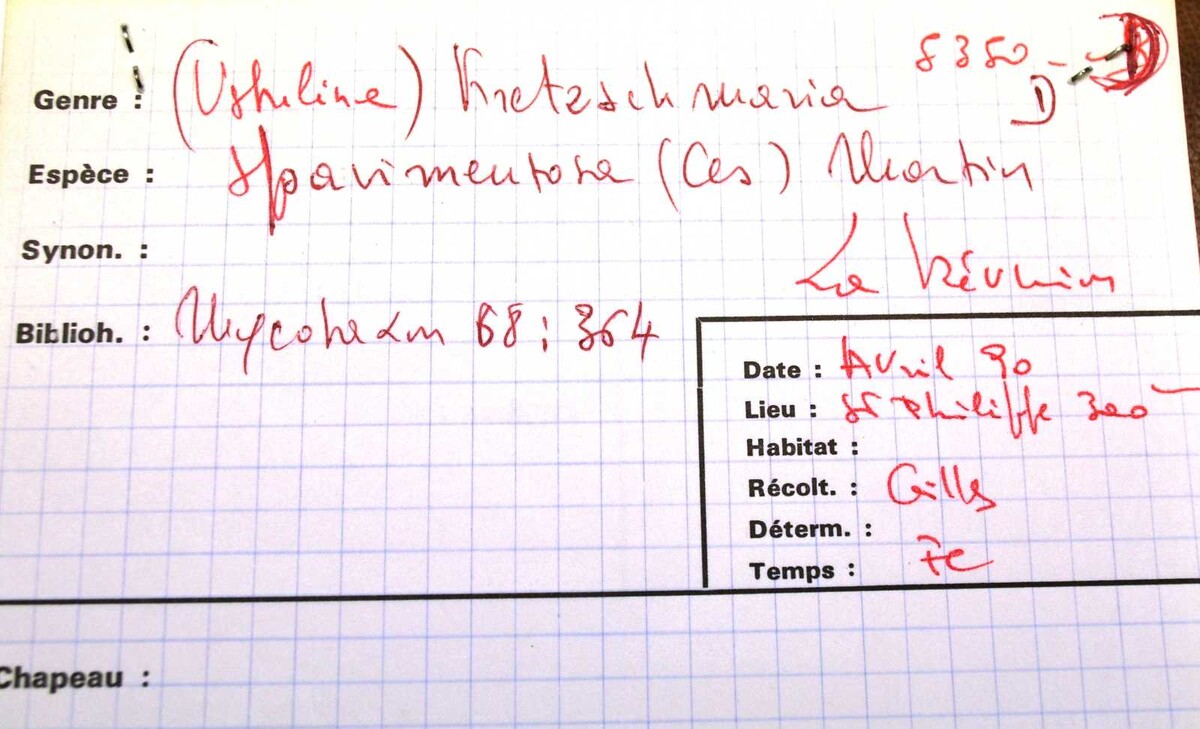 8350 - D
Genre : (Ustuline) Kretzschmaria
D
Espèce : pavimentosa (Ces) Martin
Synon. :
La Réunion
Biblioh. : Mycotaxon 68 : 364
Date : Avril 90
Lieu : St Philippe 300
Habitat :
Récolt. : Gilles
Déterm. :
Temps :
Chapeau :